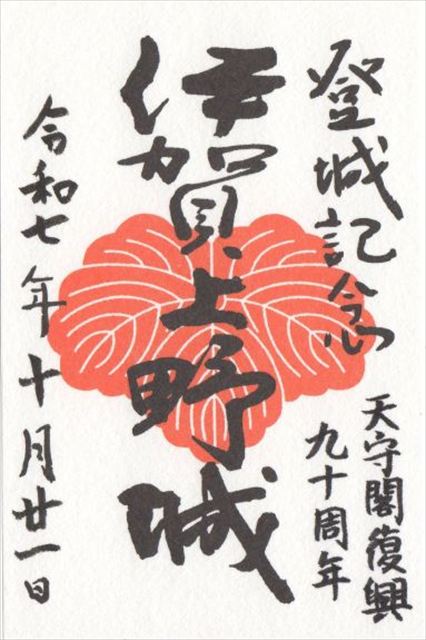 登城記念
天守閣復興
九十周年
伊賀上野城
令和七年十月廿一日